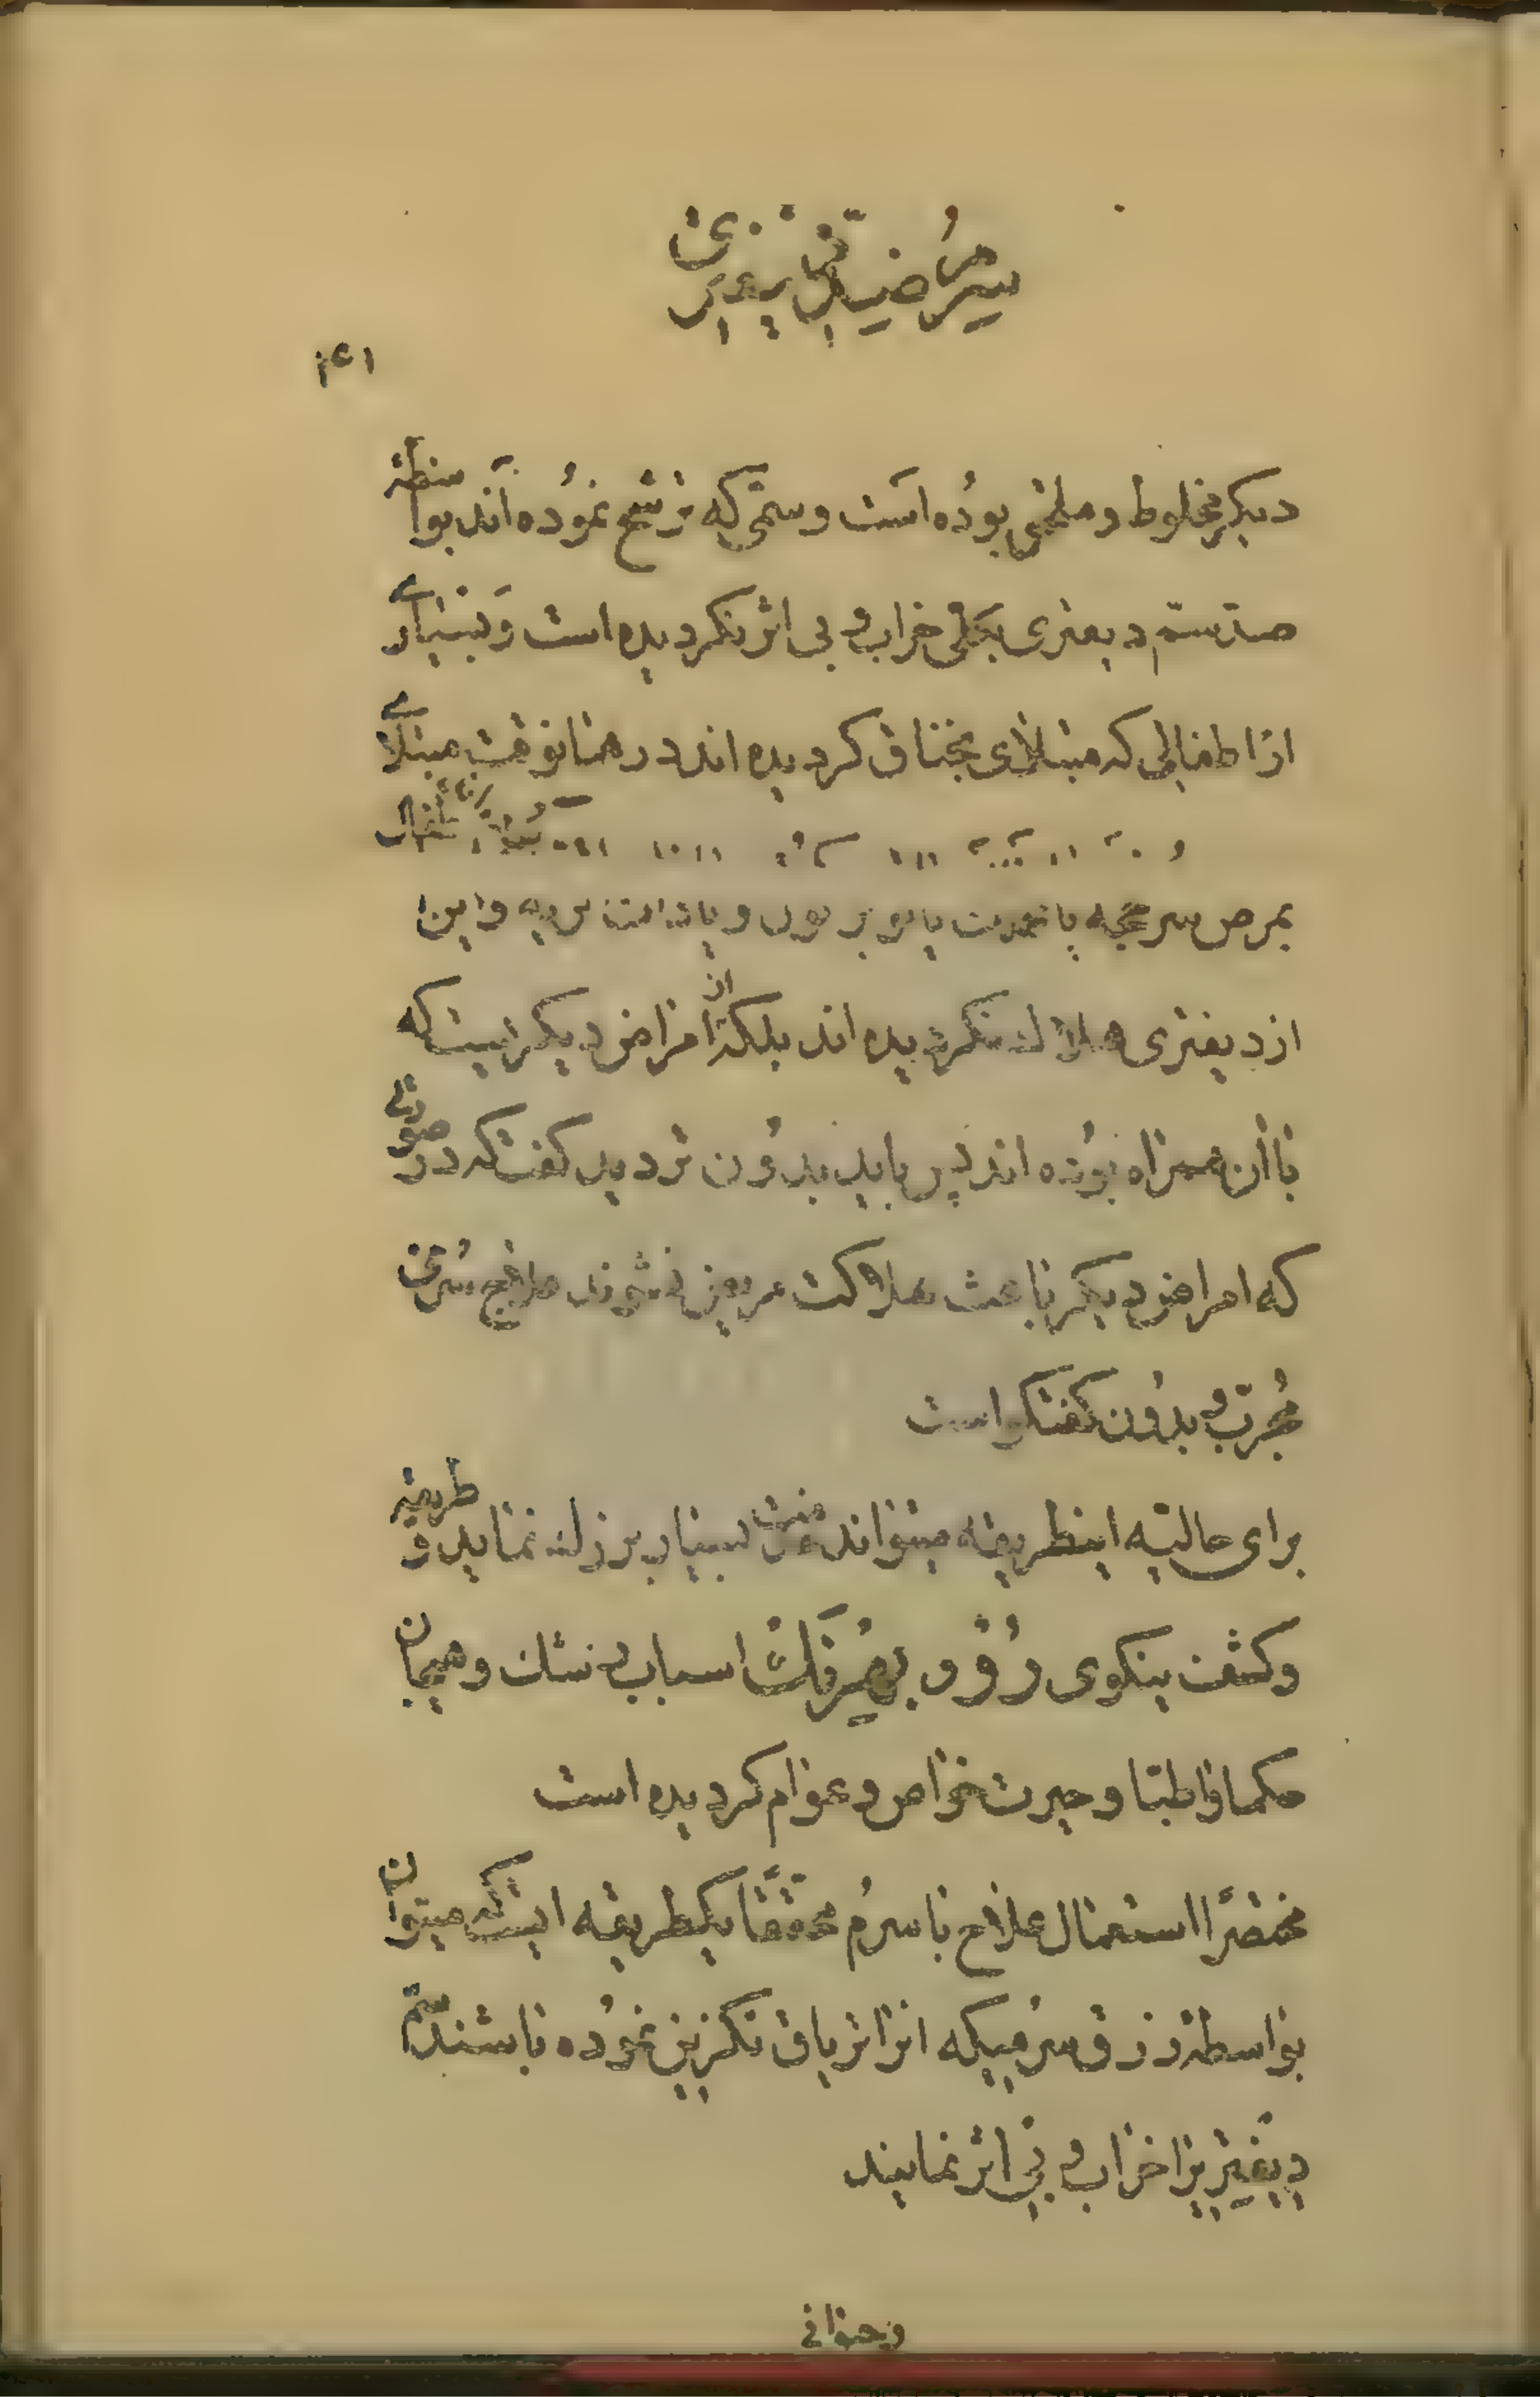 سرم ضد دیفتری
۱۴۱
دیگر مخلوط و ملتجی بوده است و سمّی که ترشح نموده اند بواسطهٔ
ضد سمّ دیفتری بکلی خراب و بی اثر نگردیده است و بسیاری
از اطفالی که مبتلای بخناق گردیده اند در همانوقت مبتلای
بمرض سرخجه یا یا و یا ذات الریه و این اطفال
از دیفتری هلاک نگردیده اند بلکه از امراض دیگریست که
با آن همراه بوده اند پس باید بدون تردید گفت که در صورتی
که امراض دیگر باعث هلاکت مریض نشوند علاج سرمی
مجرب و بدون گفتگو است
برای حالیه اینطریقه میتواند منت بسیار بزرگ نماید و طریقه
وکشف نیکوی رو و بهرنک اسباب و هیجان
حکما و اطبا و حیرت خواص و عوام گردیده است
مختصراً استعمال علاج با سرم محققا یکطریقه ایست که میتوان
بواسطهٔ زرق سرمیکه انرا تریاق نموده باشند سمّ
دیفتریرا خراب و بی اثر نمایند